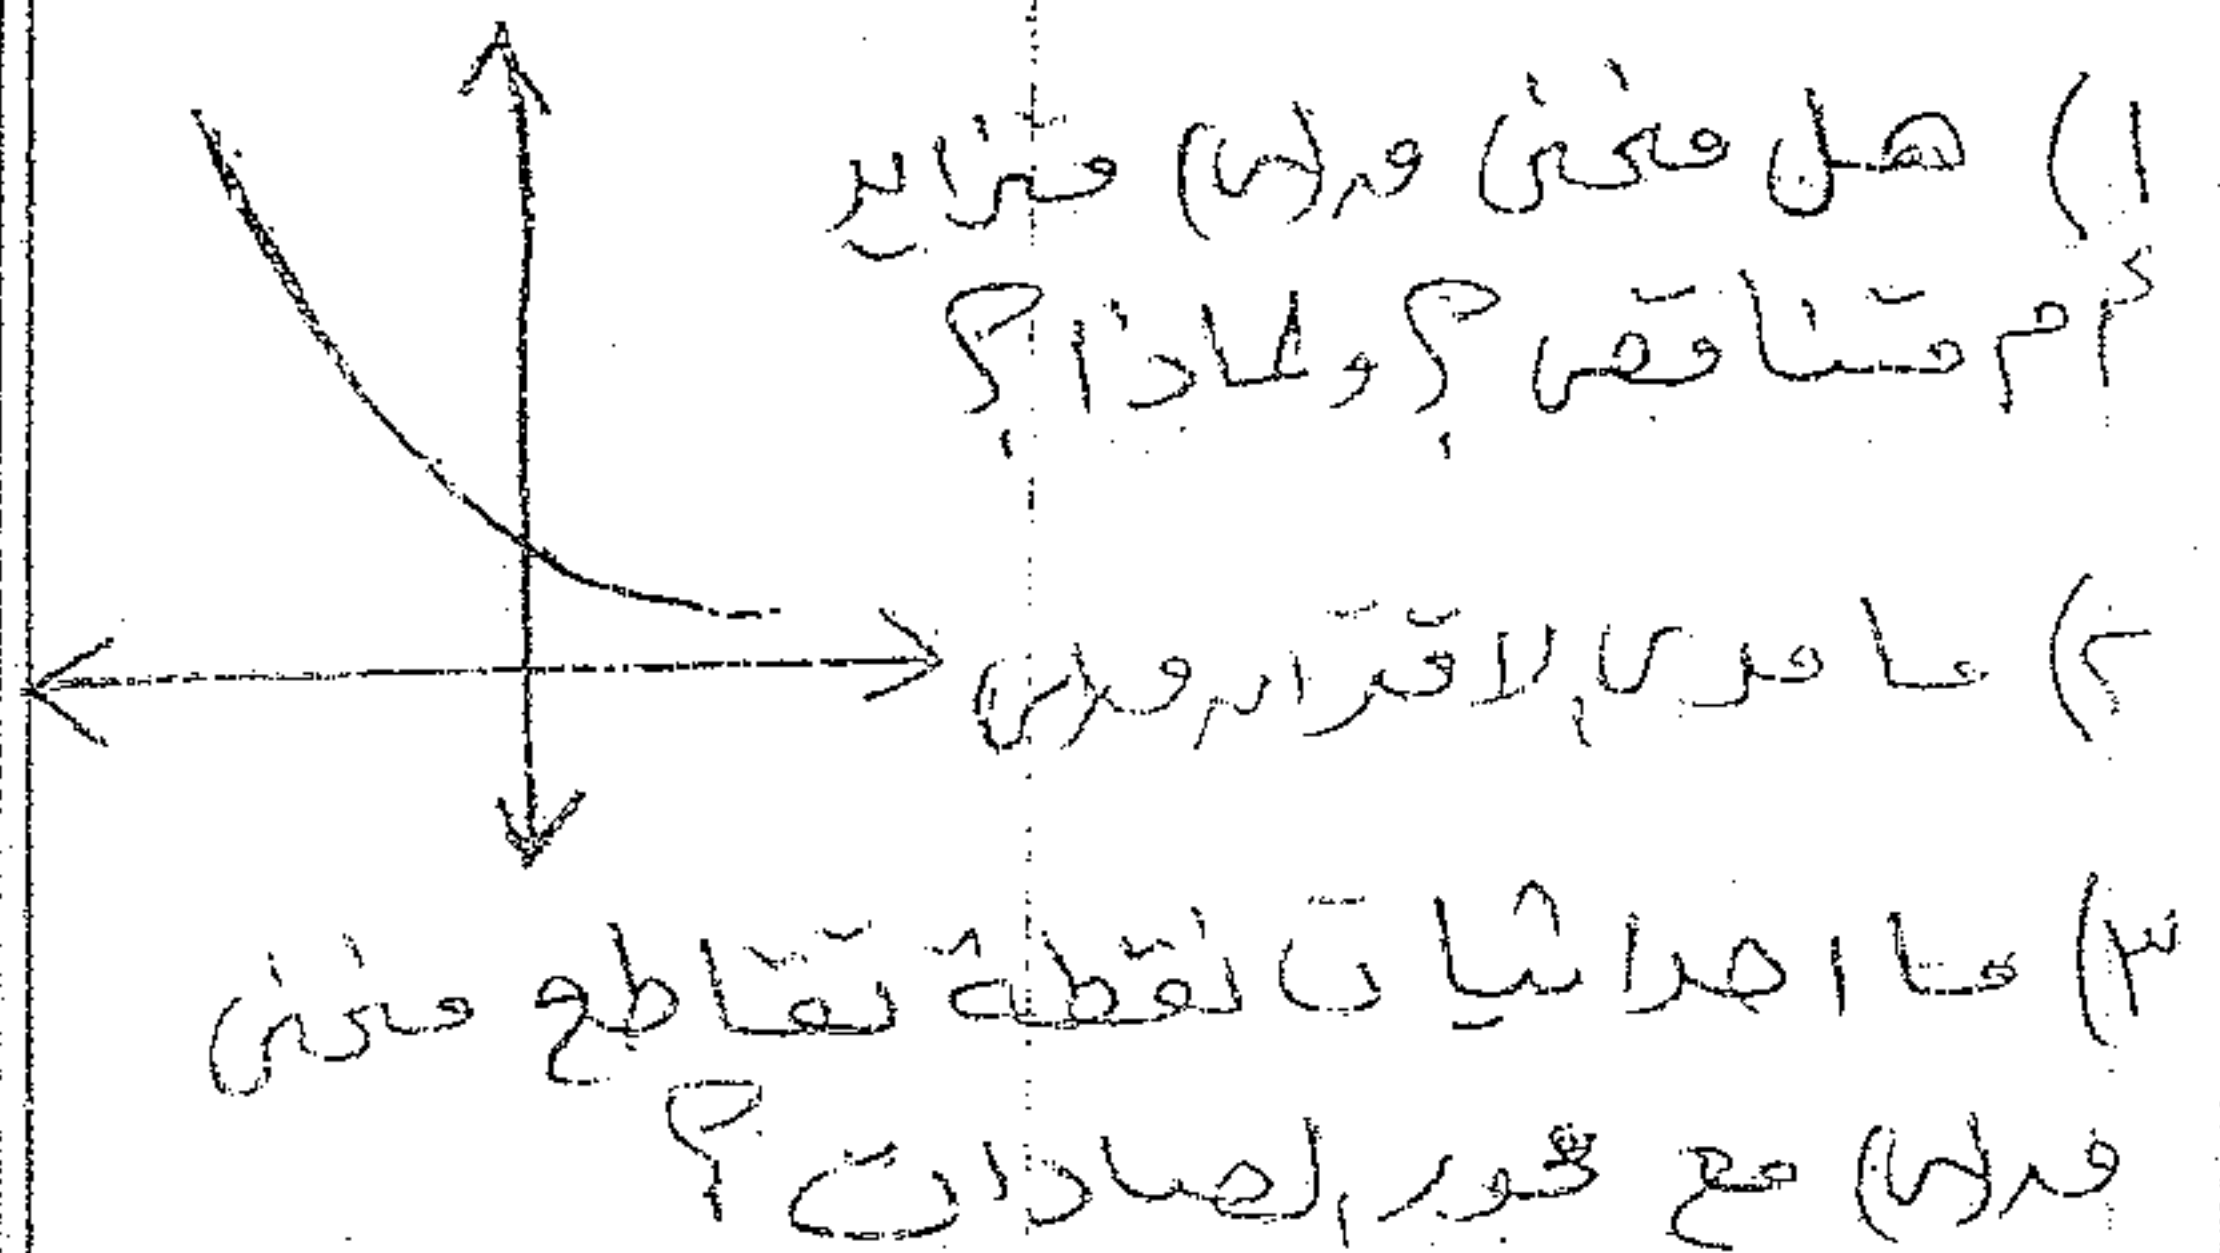 ١) هل منحنى ق(س) متزايد
أم متناقص؟ ولماذا؟
٢) ما مدى الاقتران ق(س)
٣) ما احداثيات نقطة تقاطع منحنى
ق(س) مع محور الصادات؟